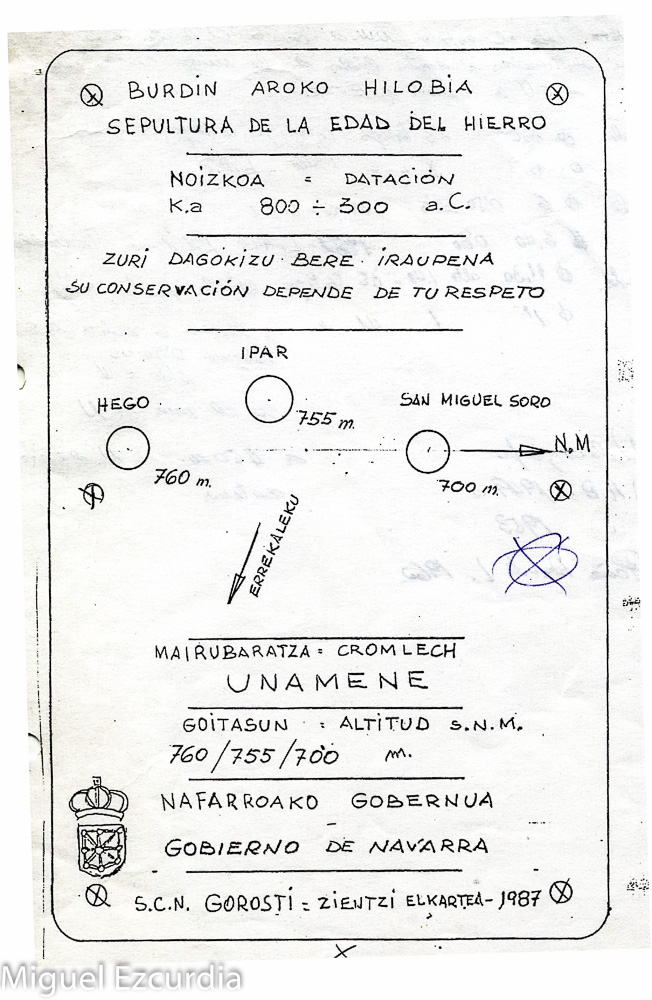 BURDIN AROKO HILOBIA
SEPULTURA DE LA EDAD DEL HIERRO
NOIZKOA = DATACIÓN
K.a 800 ÷ 300 a.C.
ZURI DAGOKIZU BERE IRAUPENA
SU CONSERVACIÓN DEPENDE DE TU RESPETO
IPAR
HEGO
SAN MIGUEL SORO
755 m.
N.M
760 m.
700 m.
ERREKALEKU
MAIRUBARATZA = CROMLECH
UNAMENE
GOITASUN = ALTITUD S.N.M.
760/755/700 m.
NAFARROAKO GOBERNUA
GOBIERNO DE NAVARRA
S.C.N. GOROSTI = ZIENTZI ELKARTEA-1987
Miguel Ezcurdia